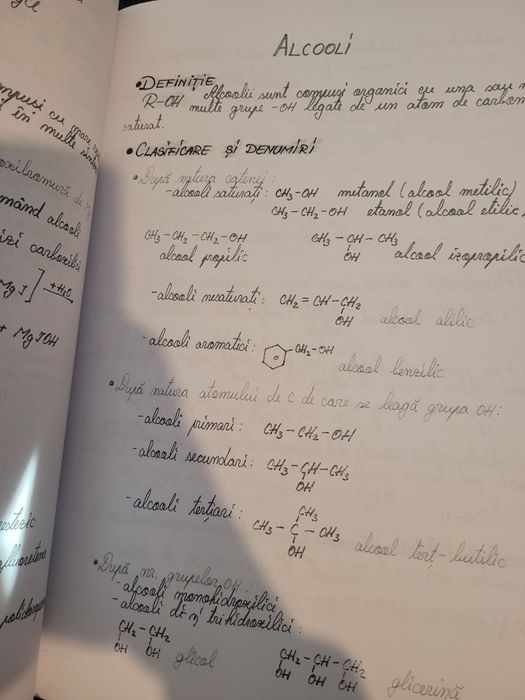 ALCOOLI
• DEFINIȚIE
R-OH Alcoolii sunt compuși organici cu una sau
multe grupe -OH legate de un atom de carbon
saturat.
• CLASIFICARE ȘI DENUMIRI
• După natura catenei:
- alcooli saturați: CH3-OH metanol (alcool metilic)
CH3-CH2-OH etanol (alcool etilic)
CH3-CH2-CH2-OH CH3-CH-CH3
OH
alcool propilic alcool izopropilic
- alcooli nesaturați: CH2=CH-CH2
OH alcool alilic
- alcooli aromatici: CH2-OH
alcool benzilic
• După natura atomului de C de care se leagă grupa OH:
- alcooli primari: CH3-CH2-OH
- alcooli secundari: CH3-CH-CH3
OH
- alcooli terțiari: CH3
CH3-C-CH3
OH alcool terț-butilic
• După nr. grupelor OH:
- alcooli monohidroxilici
- alcooli di- și trihidroxilici:
CH2-CH2 CH2-CH-CH2
OH OH glicol OH OH OH glicerină
mând alcooli
izi carboxilici
MgI] +H2O
+ MgIOH